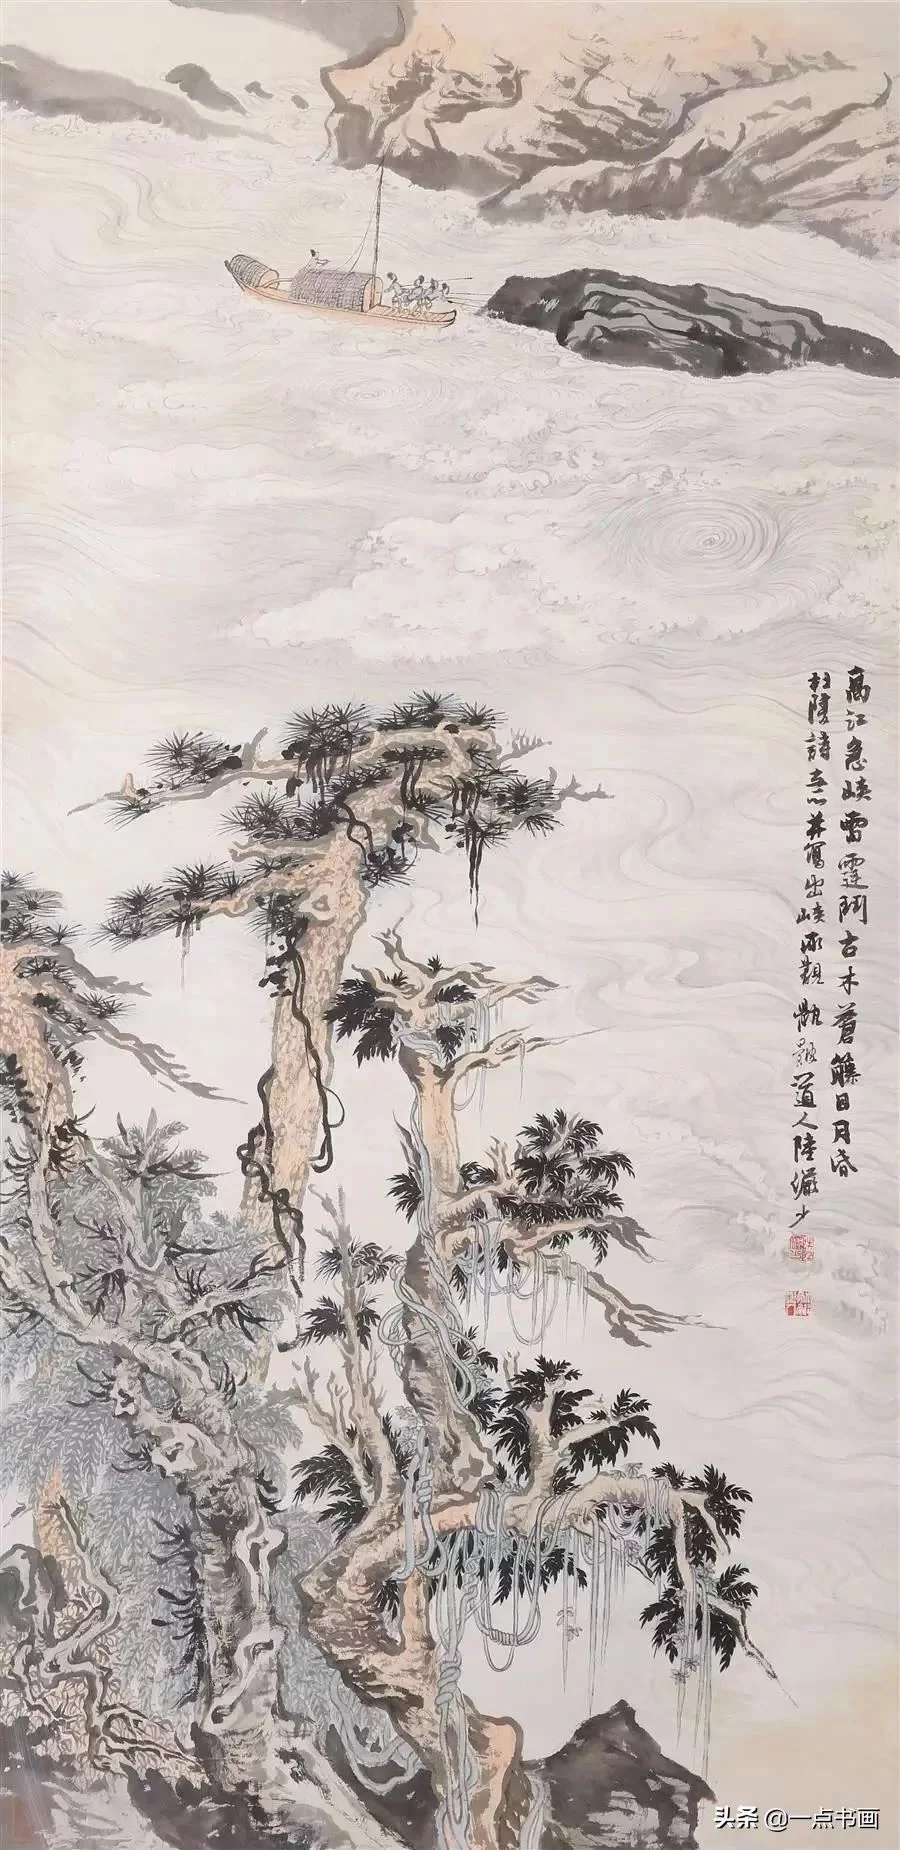 高江急峽雷霆鬥古木蒼藤日月昏
杜陵詩意並寫出峽所觀 骫骳道人陸儼少
头条 @一点书画